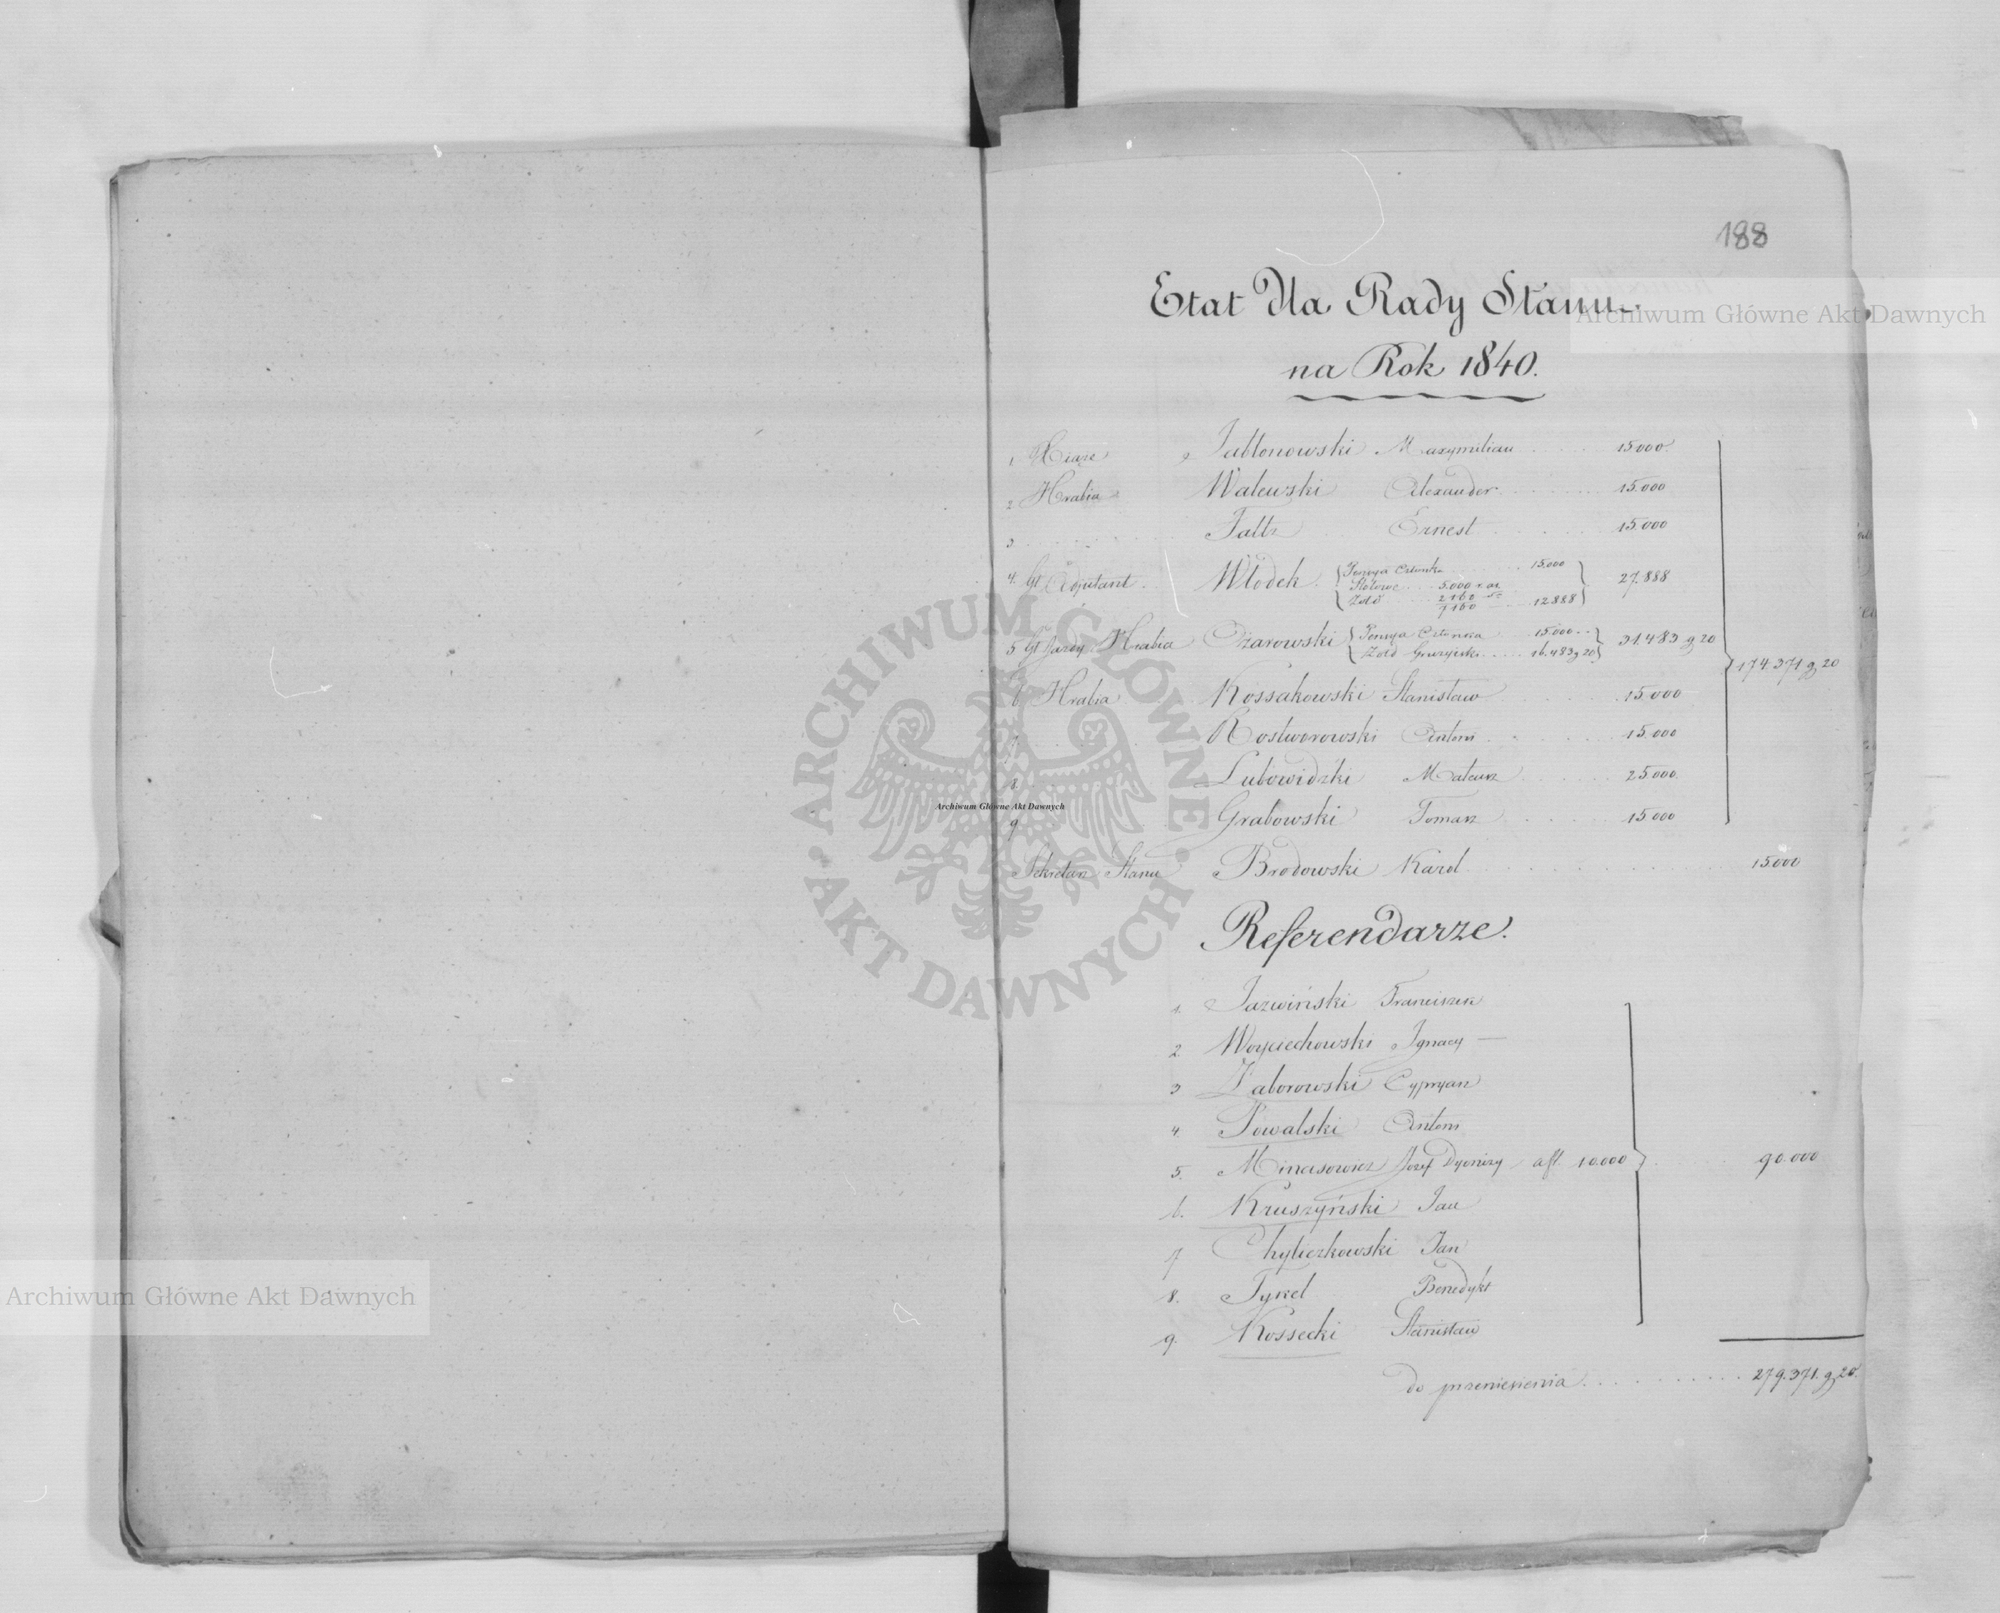 188
Etat dla Rady Stanu
na Rok 1840.
1 Xiąże Jabłonowski Maxymilian 15000
2 Hrabia Walewski Alexander 15.000
3 Faltz Ernest 15.000
4. Gł Adjutant Włodek
Pensya Członka 15.000
Stołowe 5.000
Żołd 2160
7160 12888
27.888
5 Hrabia Ożarowski
Pensya Członka 15.000
Żołd 16.483 g 20
31.483 g 20
6 Hrabia Kossakowski Stanisław 15.000
7 Rostworowski Antoni 15.000
8 Lubowidzki Mateusz 25.000
9 Grabowski Tomasz 15.000
174.371 g 20
Sekretarz Stanu Brodowski Karol 15.000
Referendarze.
1. Jaźwiński Franciszek
2 Woyciechowski Ignacy
3 Zaborowski Cypryan
4. Powalski Antoni
5. Minasowicz Józef Dyonizy a fl 10.000 90.000
6. Kruszyński Jan
7 Chyliczkowski Jan
8. Tykel Benedykt
9. Kossecki Stanisław
do przeniesienia 279.371. g 20.
Archiwum Główne Akt Dawnych
Archiwum Główne Akt Dawnych
Archiwum Główne Akt Dawnych
ARCHIWUM GŁÓWNE AKT DAWNYCH